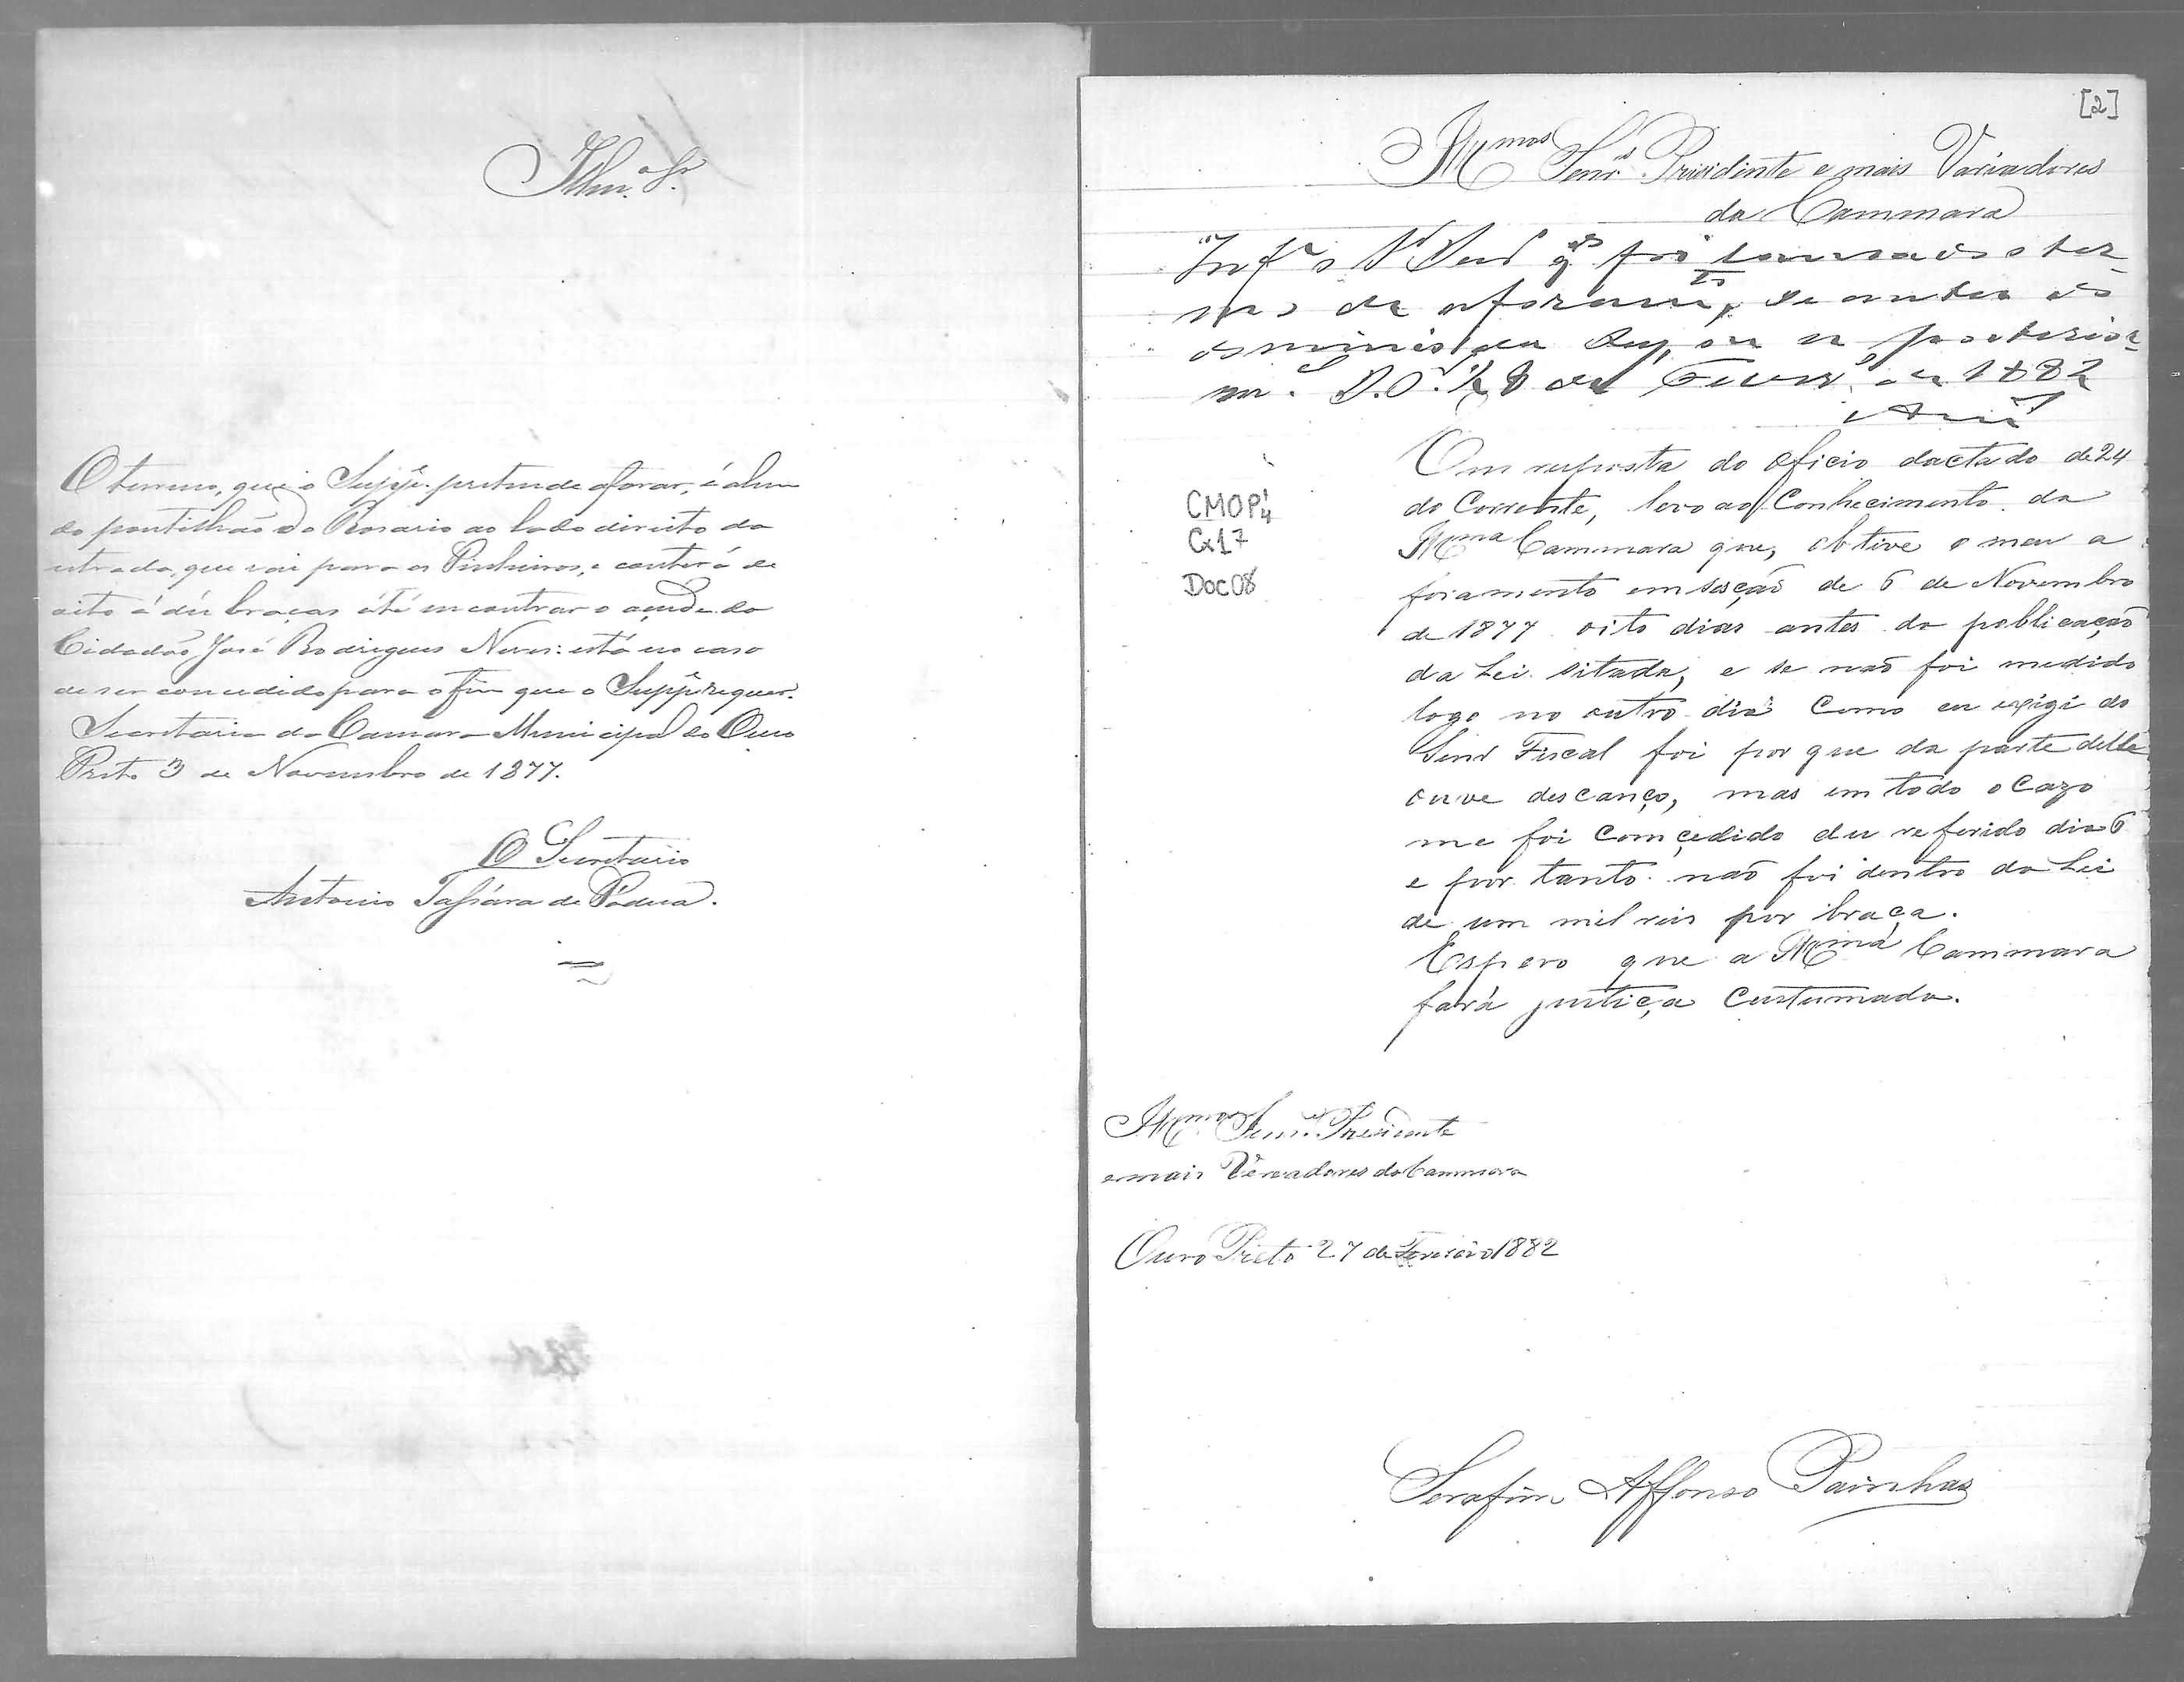 Illm.º Sr.
O terreno, que o Supp.e pretende aforar, é alem
do pontilhão do Rosario ao lado direito da
estrada, que vai para os Pinheiros, e conterá de
oito á dez braças até encontrar o açude do
Cidadão José Rodrigues Neves: está no caso
de ser concedido para o fim que o Supp.e requer.
Secretaria da Camara Municipal do Ouro
Preto 3 de Novembro de 1877.
O Secretario
Antonio Tassára de Padua.
[2]
Illmos Senr.s Prezidente e mais Variadores
da Cammara
Inf.e o Sr Secr q.do foi lavrado o ter-
mo de aforam.to, se antes do
da Ley, ou se posterior-
m.e O.P. 28 de Fever.º de 1882
CMOP 4
Cx17
Doc 08
Em resposta do oficio dactado de 24
do Corrente, levo ao Conhecimento da
Illma Cammara que, obtive o meu a
foramento em sesção de 6 de Novembro
de 1877 oito dias antes da poblicação
da Lei sitada, e se não foi medido
logo no outro dia como eu exigi do
Senr Fiscal foi por que da parte delle
ouve descanço, mas em todo o cazo
me foi comçedido du referido dia 6
e por tanto não foi dentro da Lei
de um mil reis por braça.
Espero que a Illma Cammara
fará justiça custumada.
Illmos Senr.es Presidente
e mais Vereadores da Cammara
Ouro Preto 27 de Fevreiro 1882
Serafim Affonso Painhas